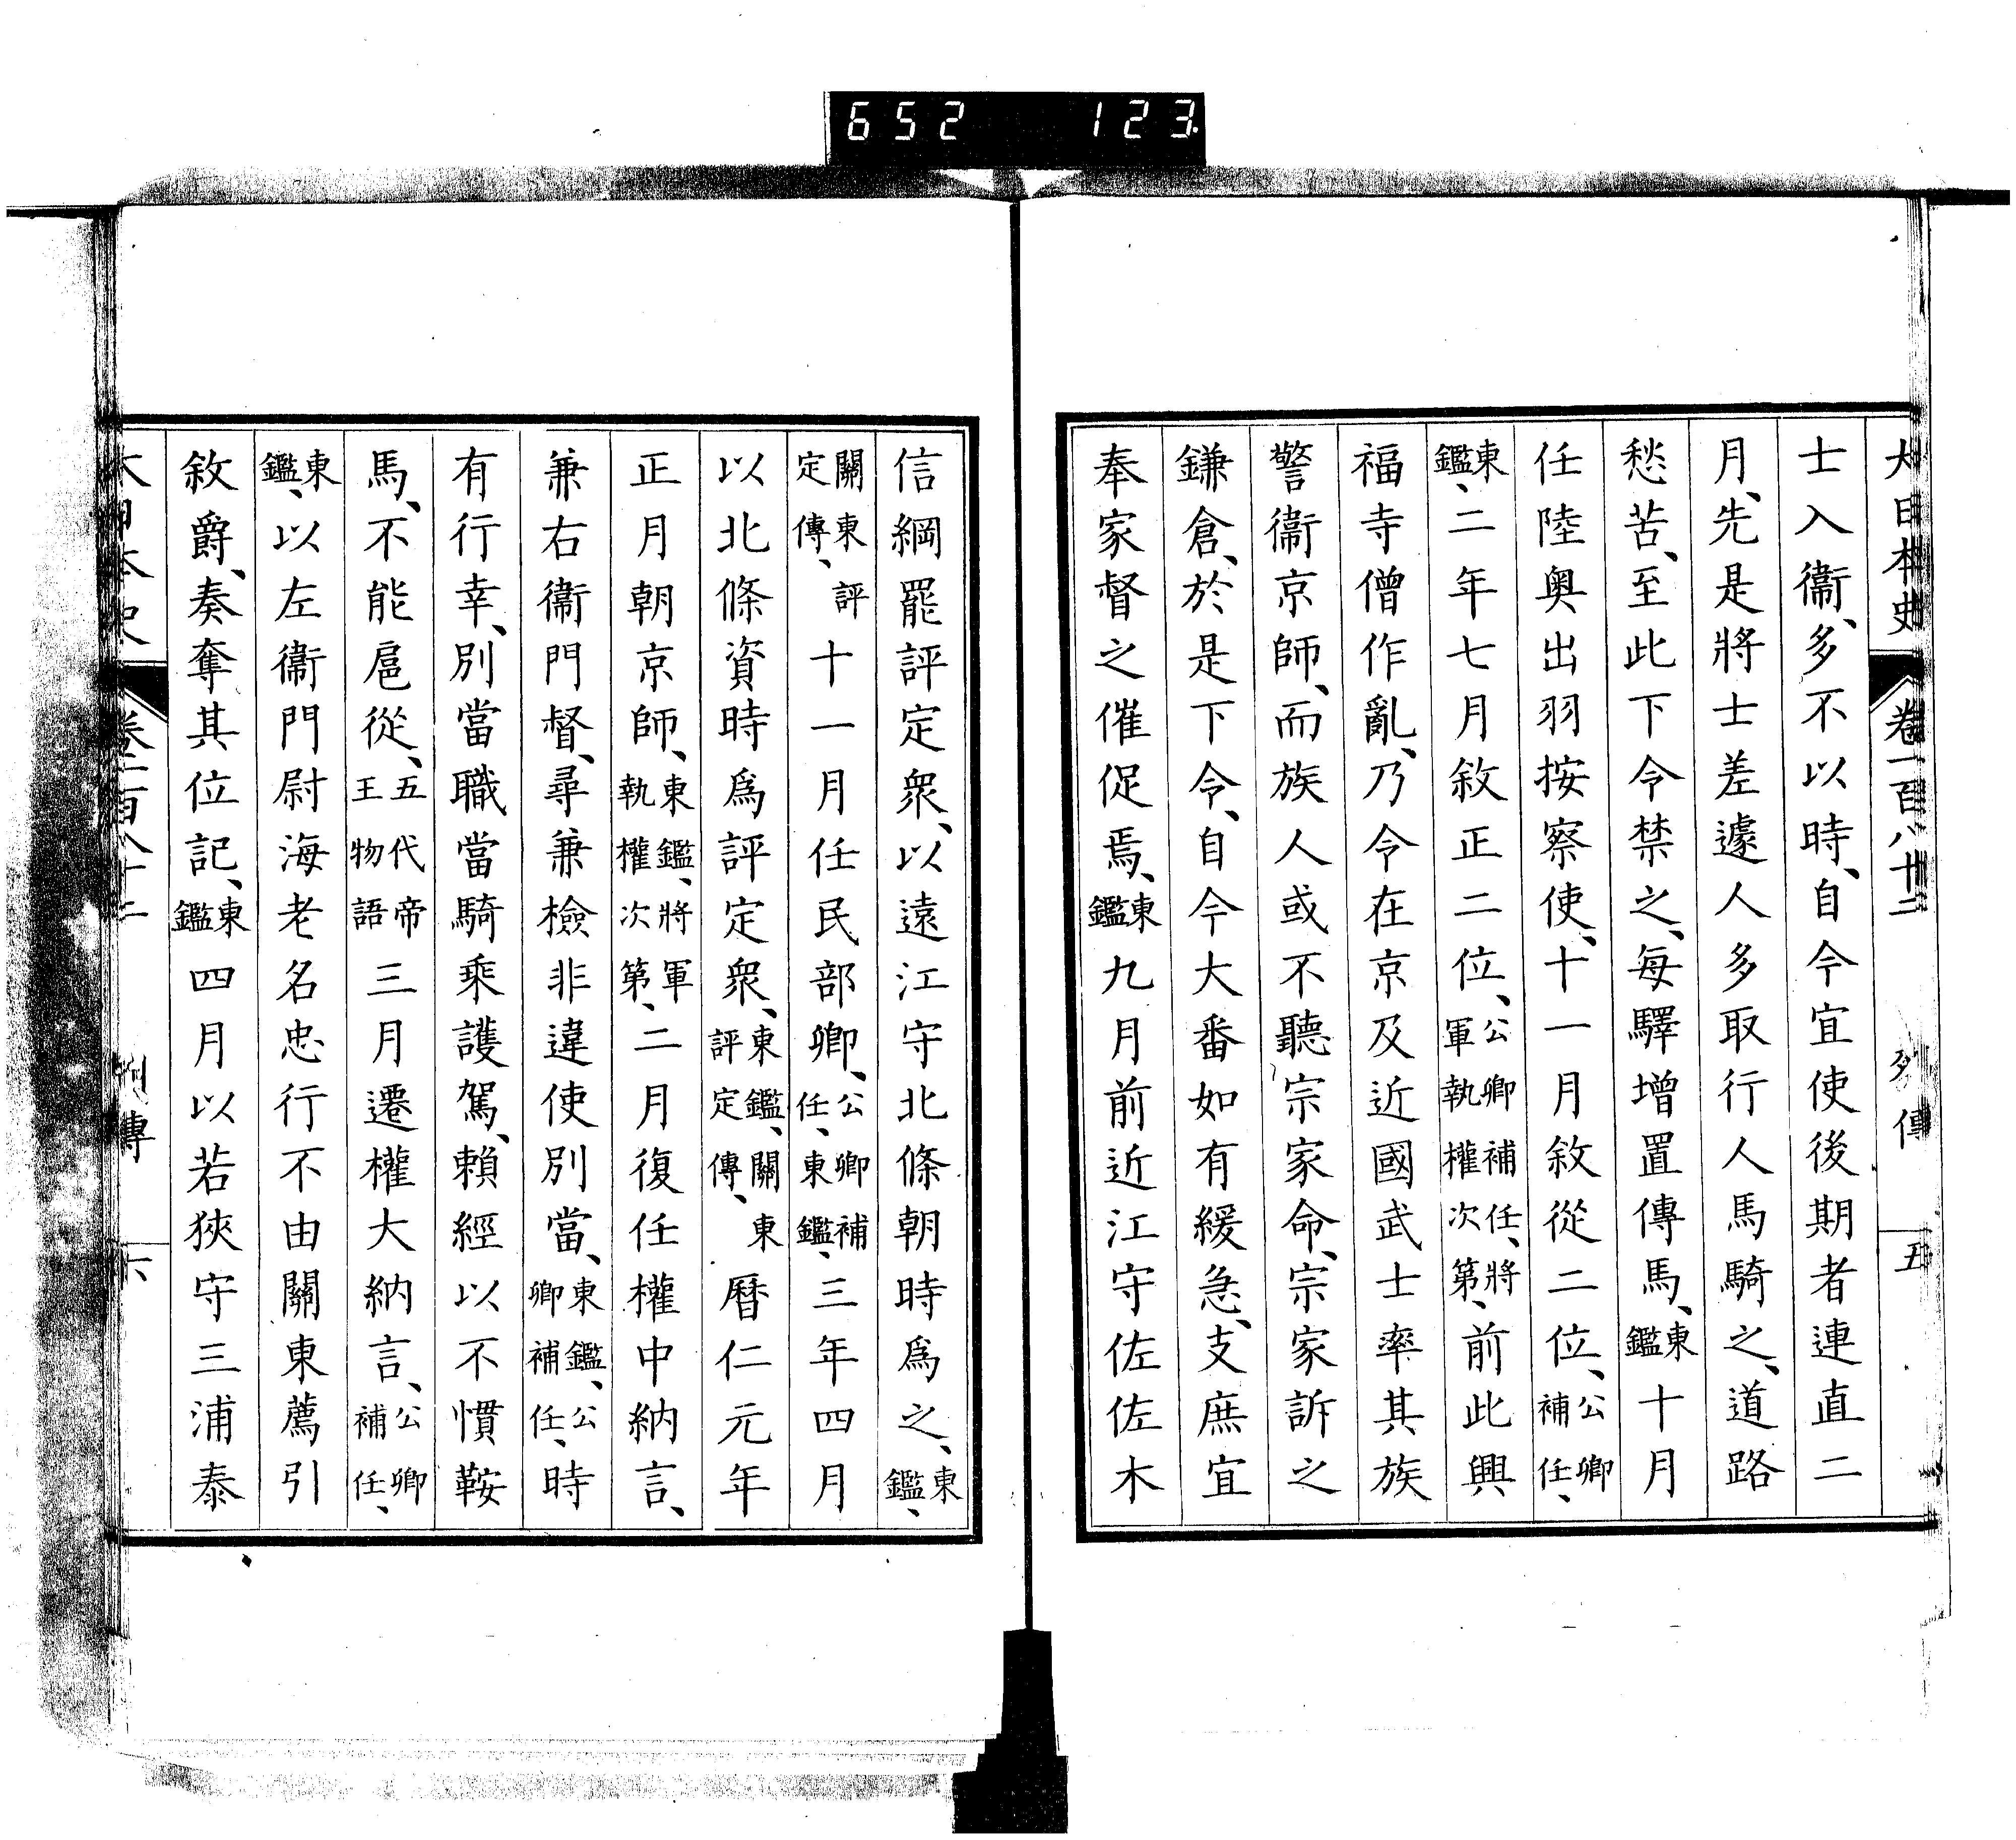 652 123.
大日本史 卷一百八十二 列傳 五
士入衞、多不以時、自今宜使後期者連直二
月、先是將士差遽人多取行人馬騎之、道路
愁苦、至此下令禁之、每驛增置傳馬、東鑑十月
任陸奧出羽按察使、十一月敘從二位、公卿補任、
東鑑、二年七月敘正二位、公卿補任、將軍執權次第、前此興
福寺僧作亂、乃令在京及近國武士率其族
警衞京師、而族人或不聽宗家命、宗家訴之
鎌倉、於是下令、自今大番如有緩急、支庶宜
奉家督之催促焉、東鑑九月前近江守佐佐木
信綱罷評定衆、以遠江守北條朝時爲之、東鑑、
關東評定傳、十一月任民部卿、公卿補任、東鑑、三年四月
以北條資時爲評定衆、東鑑、關東評定傳、曆仁元年
正月朝京師、東鑑、將軍執權次第、二月復任權中納言、
兼右衞門督、尋兼檢非違使別當、東鑑、公卿補任、時
有行幸、別當職當騎乘護駕、賴經以不慣鞍
馬、不能扈從、五代帝王物語三月遷權大納言、公卿補任、
東鑑、以左衞門尉海老名忠行不由關東薦引
敘爵、奏奪其位記、東鑑四月以若狹守三浦泰
大日本史 卷一百八十二 列傳 六